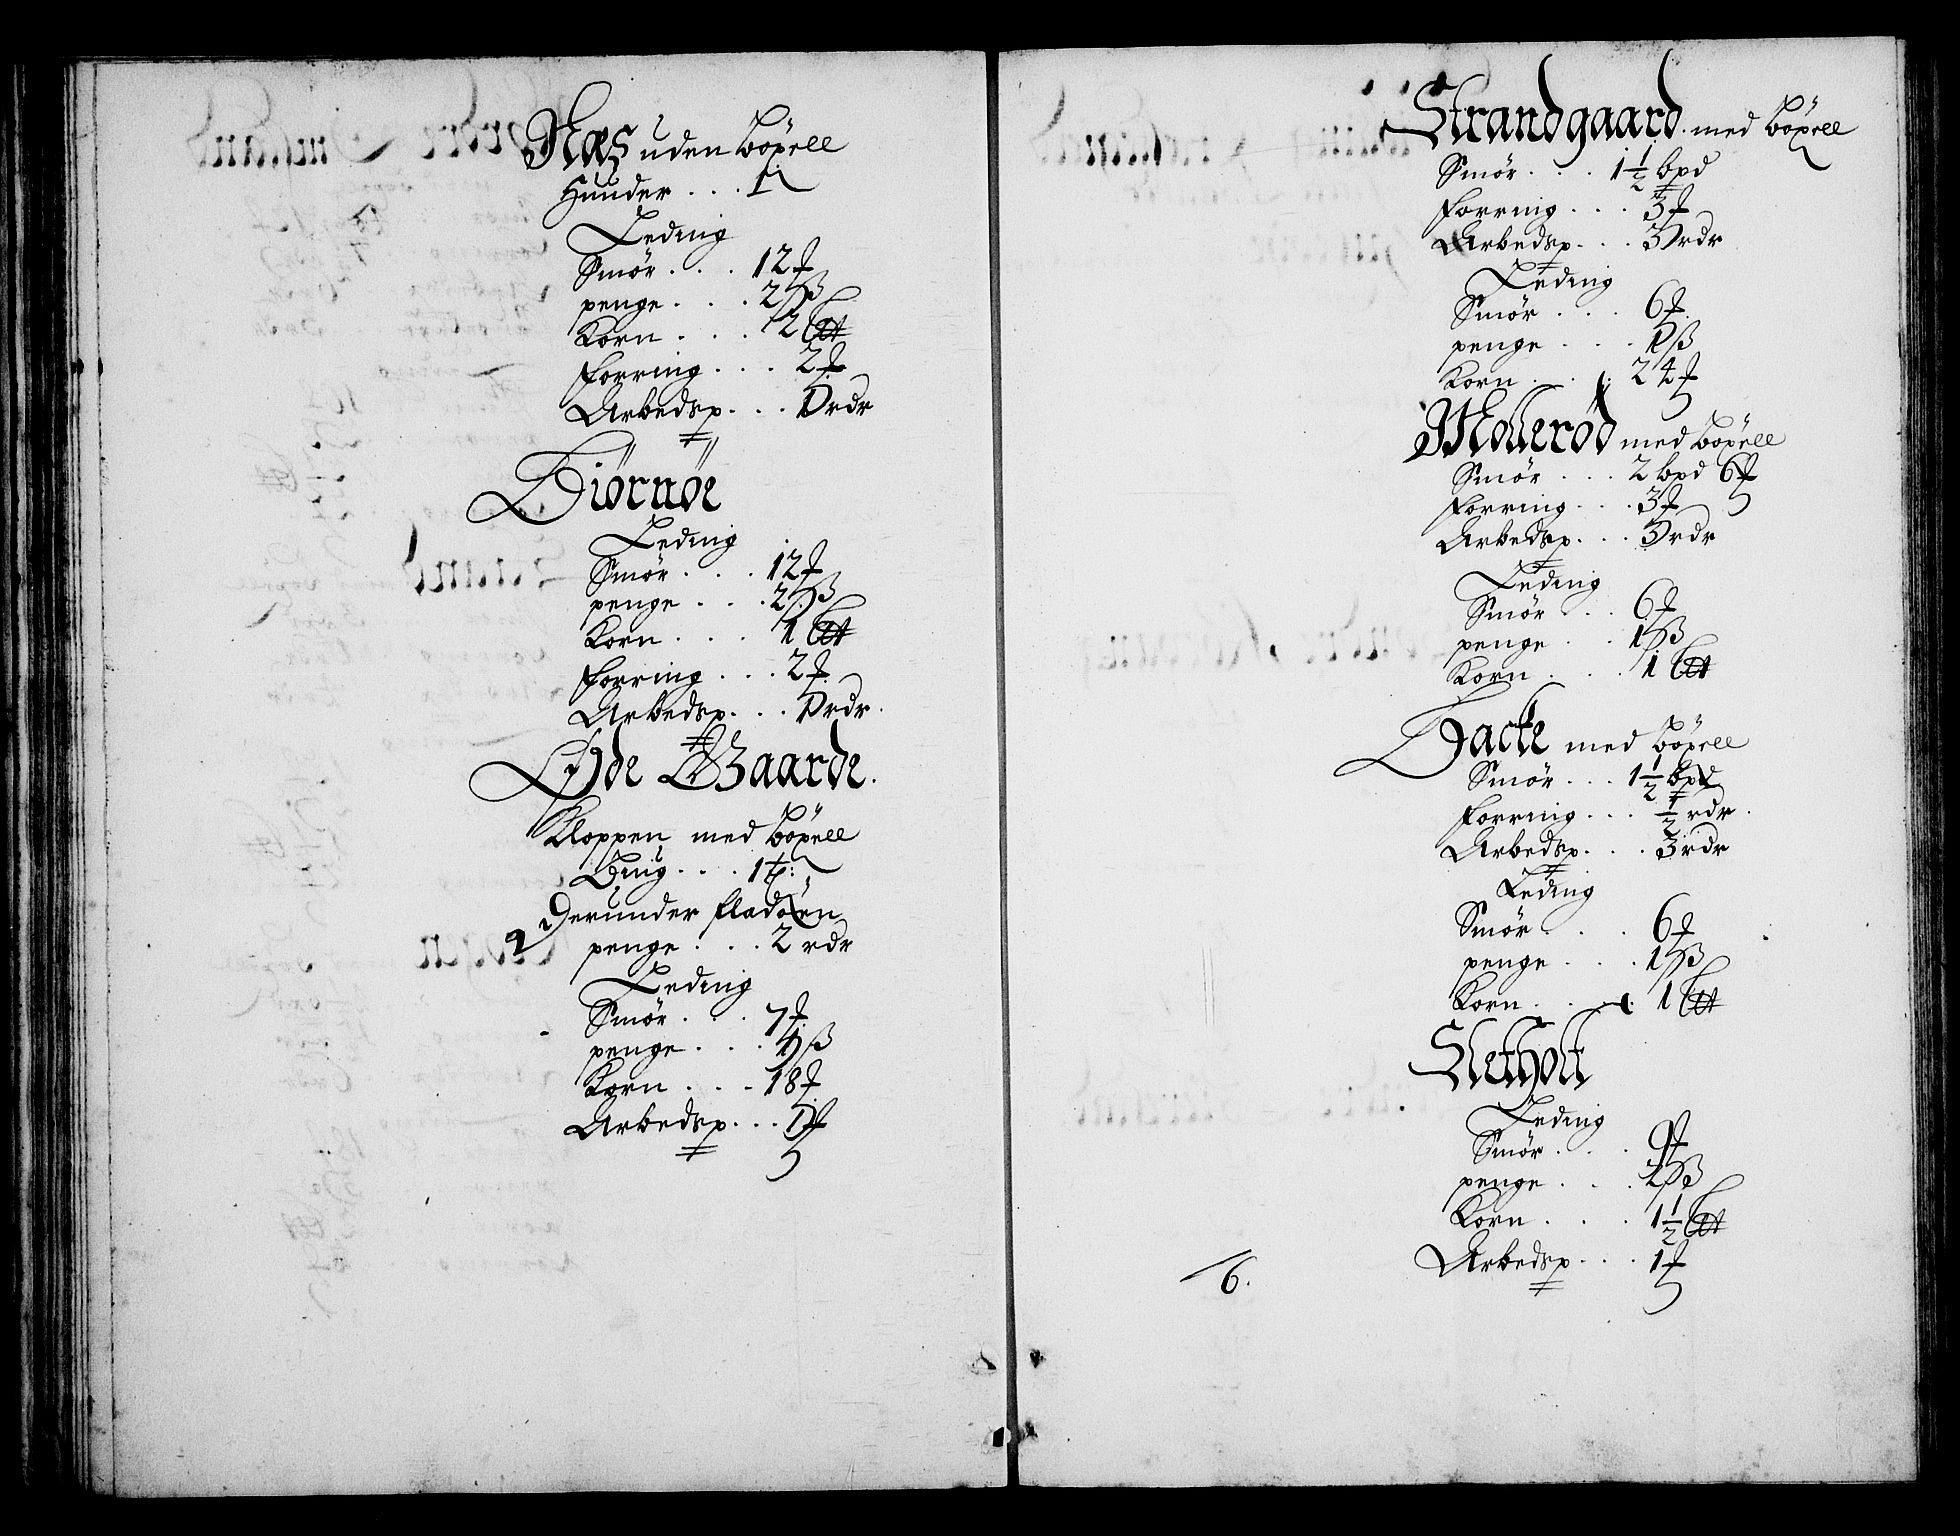 Næs uden böxell
Huuder . . . 1
Leding
Smør . . . 12 ℔
penge . . . 2 ß
Korn . . . 2
forring . . . 2 ℔
Arbedsp. . . 1 rdr
Biørnøe
Leding
Smør . . . 12 ℔
penge . . . 2 ß
Korn . . . 1
forring . . . 2 ℔
Arbedsp. . . 1 rdr.
Øde Gaarde.
Kloppen med böxell
. . . 1 t:
Derunder fladøen
penge . . . 2 rdr
Leding
Smør . . . 7 ℔
penge . . . ß
Korn . . . 18 ℔
Arbedsp. . . 1 ℔
Strandgaard med böxell
Smör . . . 1½ bpd
forring . . . 3 ℔
Arbedsp. . . 3 rdr
Leding
Smör . . . 6 ℔
penge . . . 1 ß
Korn . . . 24 ℔
Mollerød med böxell
Smör . . . 2 bpd 6 ℔
forring . . . 3 ℔
Arbedsp. . . 3 rdr
Leding
Smør . . . 6 ℔
penge . . 1 ß
Korn . . . 1
Hacke med böxell
Smör . . . 1½ bpd
forring . . . ½ rdr.
Arbedsp. . . 3 rdr
Leding
Smör . . . 6 ℔
penge . . . 1 ß
Korn . . . 1
Sletholt
Leding
Smör . . . 9 ℔
penge . . . 2 ß
Korn . . . 1½
Arbedsp. . . 1 ℔
6.